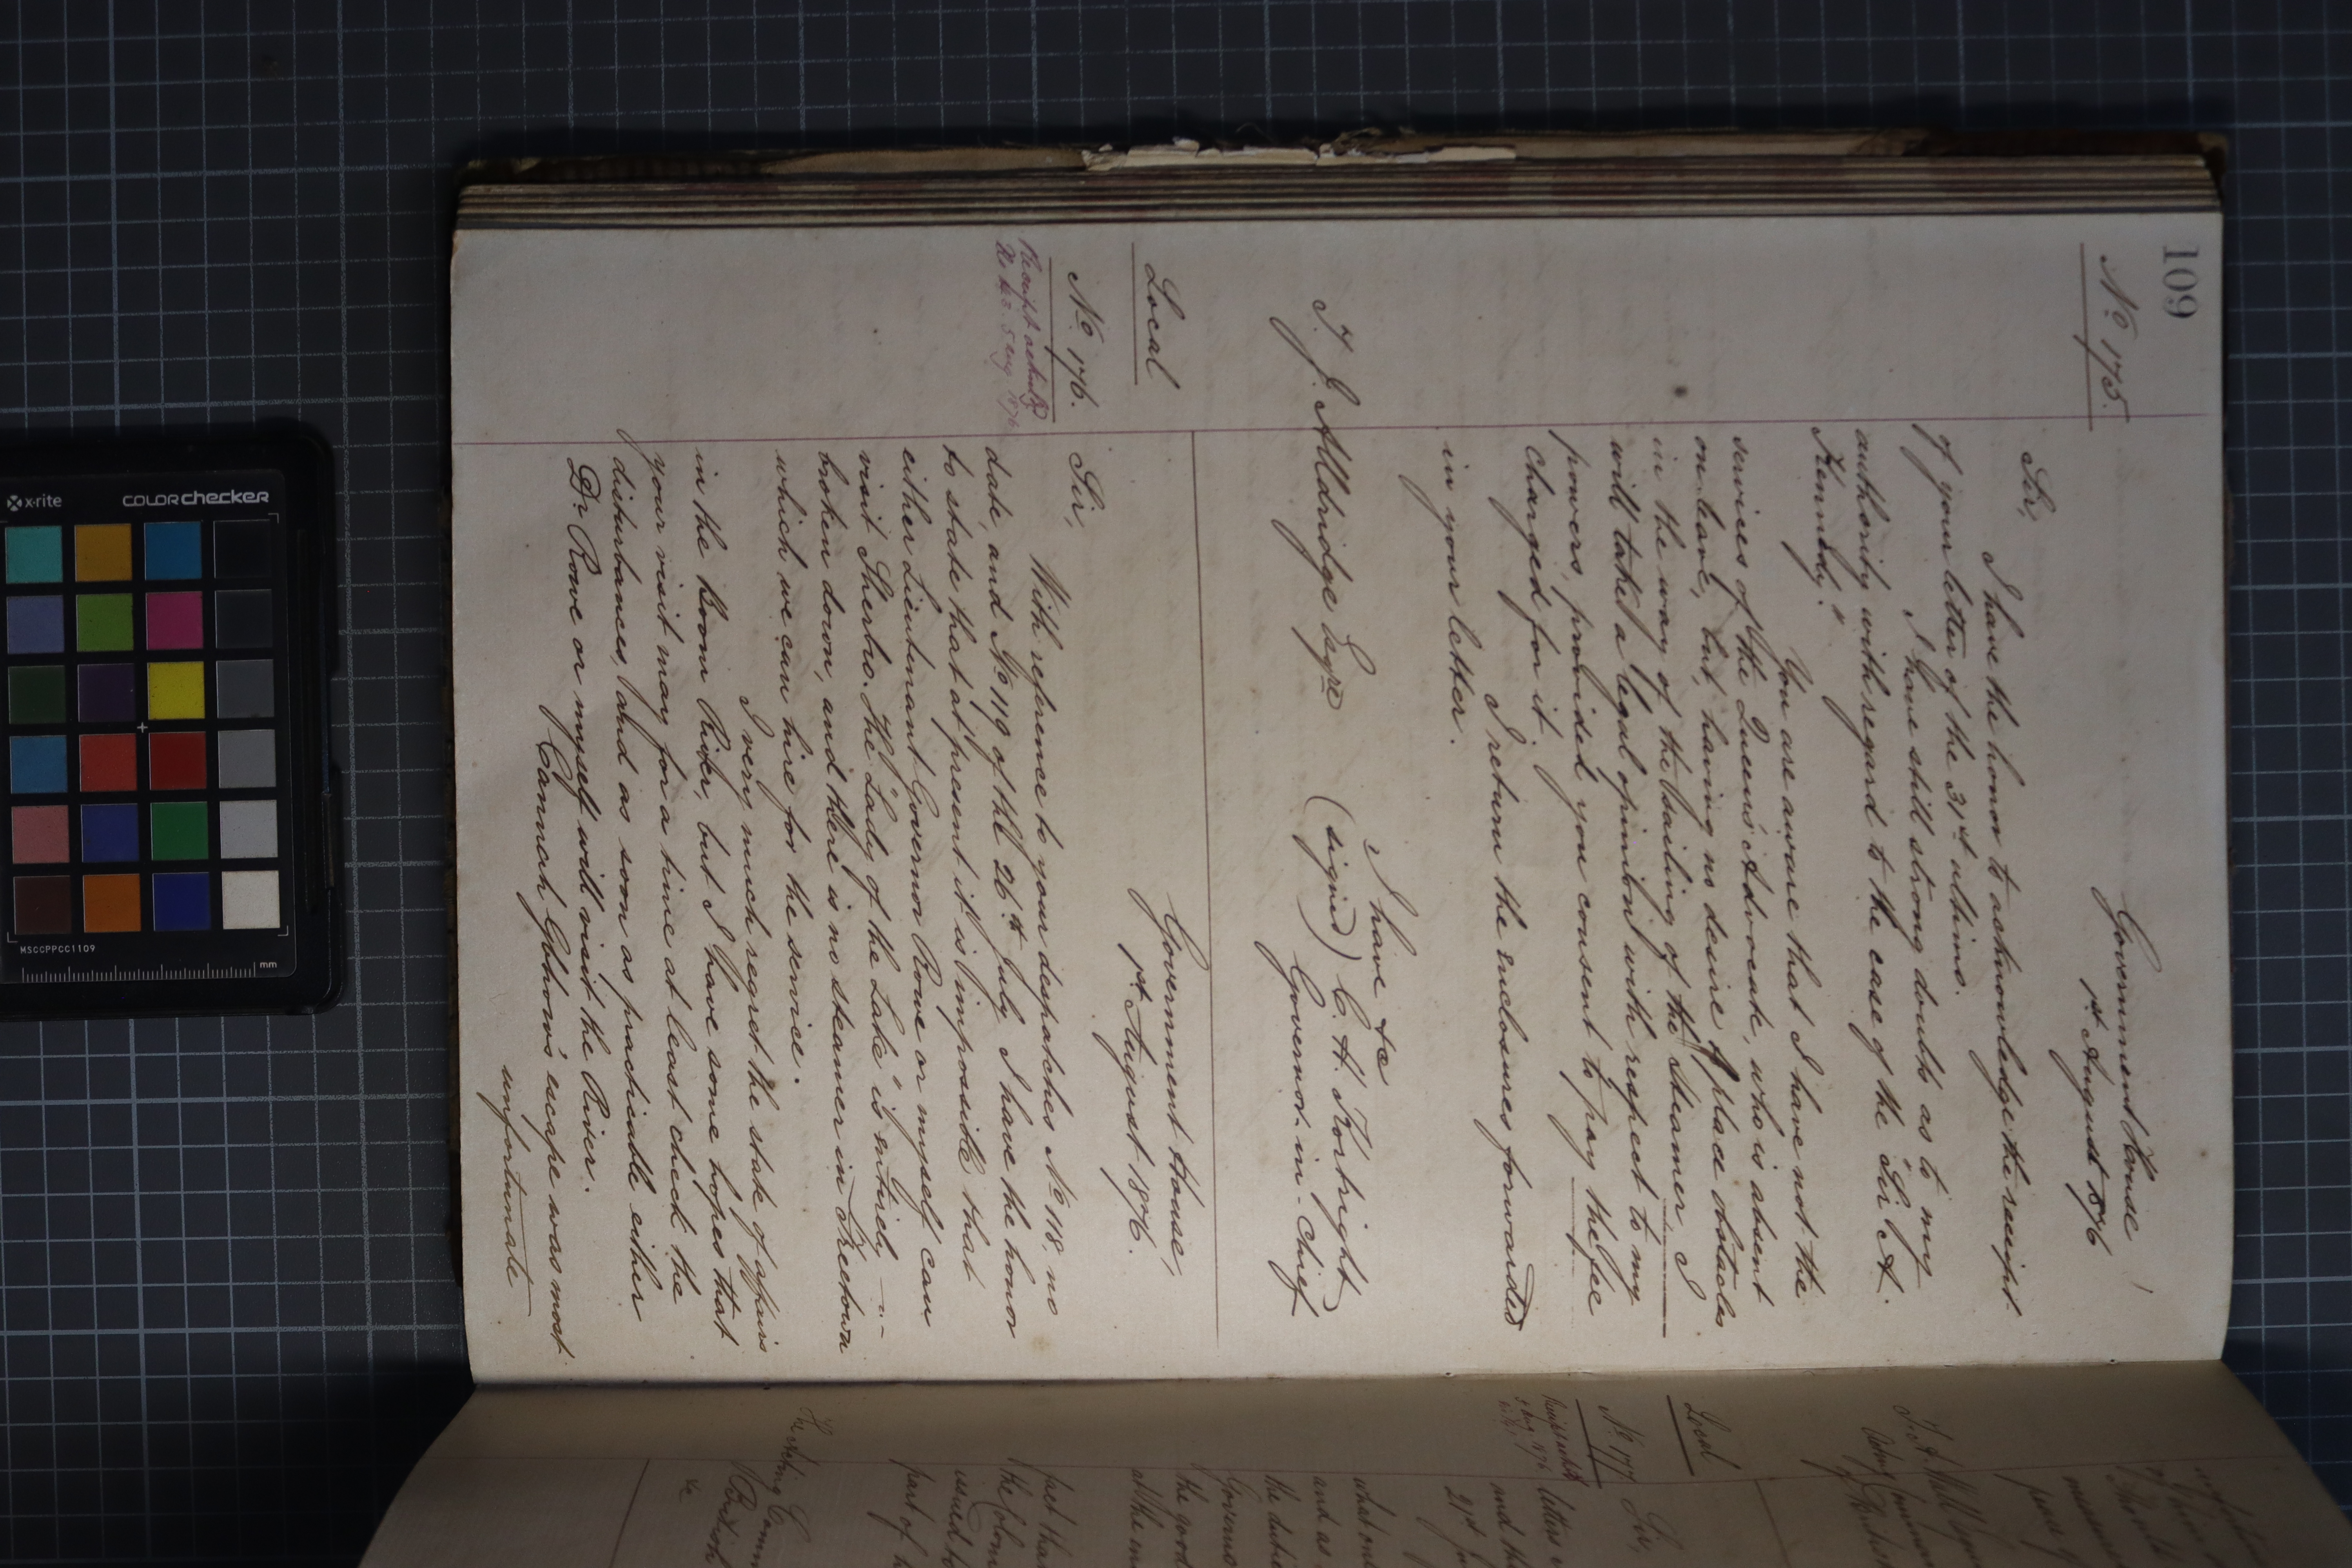 109
No. 175.
Government House
1st August 1876
Sir,
I have the honor to acknowledge the receipt
of your letter of the 31st ultimo.
I have still strong doubts as to my
authority with regard to the case of the "Sir A.
Kennedy."
You are aware that I have not the
services of the Queen's Advocate, who is absent
on leave, but, having no desire to place obstacles
in the way of the sailing of the Steamer I
will take a legal opinion with respect to my
powers, provided you consent to pay the fee
charged for it.
I return the enclosures forwarded
in your letter.
I have &c
(signed) C. H. Kortright
Governor-in-Chief
T. J. Alldridge Esqre
Local
No. 176.
Receipt acknodgd
No 123. 5 Aug 1876
Government House,
1st August 1876.
Sir,
With reference to your despatches No 118, no
date, and No 119 of the 26th July I have the honor
to state that at present it is impossible that
either Lieutenant Governor Rowe or myself can
visit Sherbro. The "Lady of the Lake" is entirely
broken down, and there is no steamer in Freetown
which we can hire for the service.
I very much regret the state of affairs
in the Boom River, but I have some hopes that
your visit may for a time at least check the
disturbances, and as soon as practicable either
Dr Rowe or myself will visit the River.
Cannah Gbbow's escape was most
unfortunate
Local
No 177
Sir,
letters
and th
21st J
what
and as
the duti
Governo
the good
all the
fact tha
the Colon
issued to
part of h
The Acting Comm
x-rite
colorchecker
MSCCPPCC1109
mm